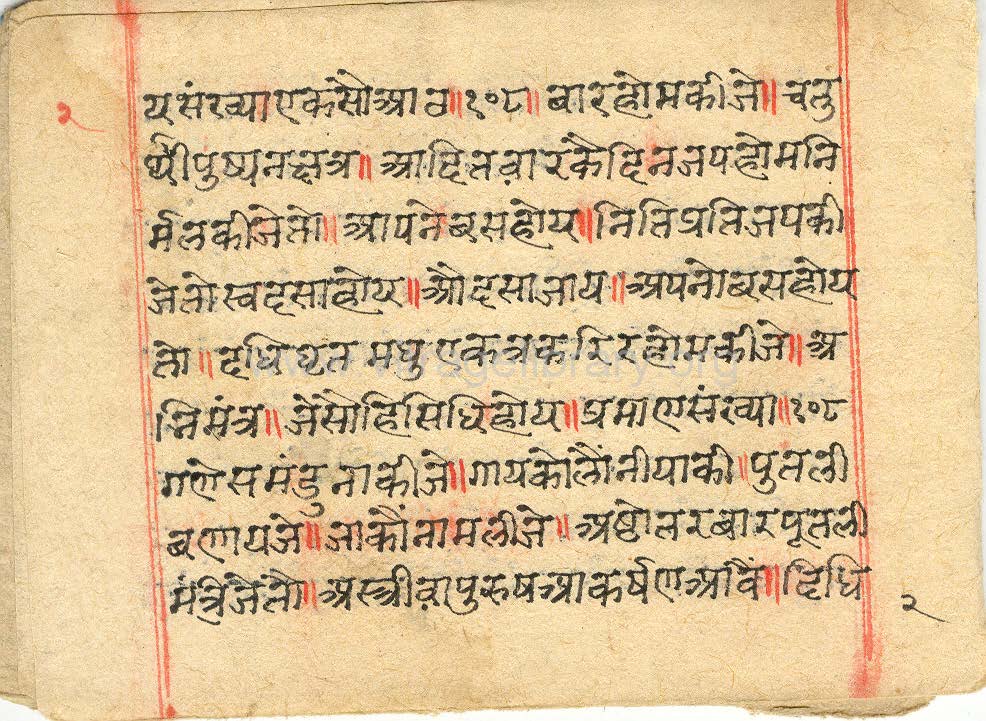 २
य संख्या एक सौ आठ॥१०८॥ बार होम कीजे॥ चतु
र्थी पुष्य नक्षत्र॥ आदितवार कै दिन जप होम नि
र्मल कीजे तो॥ आपने बस होय॥ निति प्रति जप की
जे तो स्वदृसा होय॥ औदसा जाय॥ अपनो बस होय
तो॥ दधि घृत मधु एकत्र करि र होम कीजे॥ अ
ग्नि मंत्र॥ जेंसो हि सिधि होय॥ प्रमाण संख्या॥१०८
गणेस मंडुना कीजे॥ गाय को लौंनीया की॥ पुतली
बणायजे॥ जाकौं नाम लीजे॥ अष्ठोतर बार पूतली
मंत्रिजै तौ॥ अस्त्री वा पुरुष आकर्षण आवैं॥ दिधि
२
www.viragelibrary.org